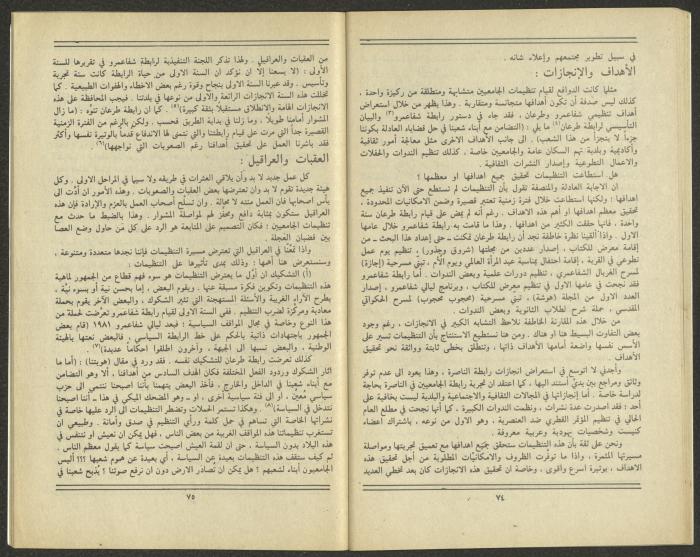 في سبيل تطوير مجتمعهم وإعلاء شأنه .
الأهداف والإنجازات :
مثلما كانت الدوافع لقيام تنظيمات الجامعيين متشابهة ومنطلقة من ركيزة واحدة ،
كذلك ليس صدفة أن تكون أهدافها متجانسة ومتقاربة . وهذا يظهر من خلال استعراض
أهداف تنظيمي شفاعمرو وطرعان ، فقد جاء في دستور رابطة شفاعمرو(٣) والبيان
التأسيسي لرابطة طرعان(٤) ما يلي : (التضامن مع أبناء شعبنا في حل قضاياه العادلة بكوننا
جزءاً لا يتجزأ من هذا الشعب) . الى جانب الأهداف الاخرى مثل معالجة أمور ثقافية
وأكاديمية وبلدية تهم السكان عامة والجامعيين خاصة ، كذلك تنظيم الندوات والحفلات
والاعمال التطوعية وإصدار النشرات الثقافية .
هل استطاعت التنظيمات تحقيق جميع اهدافها او معظمها ؟
ان الاجابة العادلة والمنصفة تقول بأن التنظيمات لم تستطع حتى الآن تنفيذ جميع
اهدافها : ولكنها استطاعت خلال فترة زمنية تعتبر قصيرة وضمن الامكانيات المحدودة ،
تحقيق معظم اهدافها او أهم هذه الاهداف . رغم أنه لم يمض على قيام رابطة طرعان سنة
واحدة ، فانها حققت الكثير من اهدافها . وهذا ما قامت به رابطة شفاعمرو خلال عامها
الاول . واذا ألقينا نظرة خاطفة نجد أن رابطة طرعان تمكنت – حتى إعداد هذا البحث – من
إقامة معرض للكتاب ، إصدار عددين من مجلتها (شروق وجذور) ، تنظيم يوم عمل
تطوعي في القرية ، إقامة احتفال بمناسبة عيد المرأة العالمي ويوم الأم ، تبني مسرحية (إجازة)
لمسرح الغربال الشفاعمري ، تنظيم دورات علمية وبعض الندوات . أما رابطة شفاعمرو
فقد نجحت في عامها الاول في تنظيم معرض للكتاب ، وبرنامج ليالي شفاعمرو ، إصدار
العدد الاول من المجلة (هوشة) ، تبني مسرحية (محجوب محجوب) لمسرح الحكواتي
المقدسي ، حملة شرح لطلاب الثانوية وبعض الندوات .
من خلال هذه المقارنة الخاطفة نلاحظ التشابه الكبير في الانجازات ، رغم وجود
بعض التفاوت البسيط هنا او هناك . ومن هنا نستطيع الاستنتاج بأن التنظيمات تسير على
الأسس نفسها واضعة أمامها الأهداف ذاتها ، وتنطلق بخطى ثابتة وواثقة نحو تحقيق
الأهداف .
وأجدني لا أتوسع في استعراض انجازات رابطة الناصرة ، وهذا يعود الى عدم توفر
وثائق ومراجع بين يديّ أستند اليها ، كما اعتقد ان تجربة رابطة الجامعيين في الناصرة بحاجة
لدراسة خاصة . أما إنجازاتها في المجالات الثقافية والاجتماعية والبلدية ليست بخافية على
أحد : فقد أصدرت عدة نشرات ، ونظمت الندوات الكبيرة ، كما أنها نجحت في مطلع العام
الحالي في تنظيم المؤتمر القطري ضد العنصرية ، وهو الاول من نوعه ، باشتراك أعضاء
كنيست وشخصيات يهودية وعربية معروفة .
ونحن على ثقة بأن هذه التنظيمات ستحقق جميع اهدافها مع تعميق تجربتها ومواصلة
مسيرتها المثمرة ، واذا ما توفرت الظروف والامكانيّات المطلوبة من أجل تحقيق هذه
الاهداف ، بوتيرة اسرع وأقوى ، وخاصة ان تحقيق هذه الانجازات كان بعد تخطي العديد
٧٤
من العقبات والعراقيل . ولهذا تذكر اللجنة التنفيذية لرابطة شفاعمرو في تقريرها للسنة
الأولى : (لا يسعنا إلا ان نؤكد ان السنة الاولى من حياة الرابطة كانت سنة تجربة
وتأسيس . وقد عبرنا السنة الاولى بنجاح وقوة رغم بعض الاخطاء والهفوات الطبيعية . كما
تخللت هذه السنة الانجازات الرائعة والأولى من نوعها في بلدتنا . فيجب المحافظة على هذه
الانجازات القائمة والانطلاق مستقبلاً بثقة كبيرة)(٥) . كما ان رابطة طرعان تنوّه : (ما زال
المشوار أمامنا طويلاً ، وما زلنا في بداية الطريق فحسب . ولكن بالرغم من الفترة الزمنية
القصيرة جداً التي مرت على قيام رابطتنا والتي نتمنى لها الاندفاع قدماً بالوتيرة نفسها وأكثر
فقد باشرنا العمل على تحقيق أهدافنا رغم الصعوبات التي نواجهها)(٦) .
العقبات والعراقيل :
كل عمل جديد لا بد وأن يلاقي العثرات في طريقه ولا سيما في المراحل الاولى . وكل
هيئة جديدة تقوم لا بد وان تعترضها بعض العقبات والصعوبات . وهذه الأمور ان أدّت الى
يأس اصحابها فان العمل منته لا محالة . وان تسلّح أصحاب العمل بالعزم والإرادة فإن هذه
العراقيل ستكون بمثابة دافع ومحفّز لهم لمواصلة المشوار . وهذا بالضبط ما حدث مع
تنظيمات الجامعيين : فكان التصميم على المتابعة هو الرد على كل من حاول وضع العصا
بين قضبان العجلة .
واذا تمعّنا في العراقيل التي تعترض مسيرة التنظيمات فإننا نجدها متعددة ومتنوعة ،
وسنستعرض هنا أهمها : وذلك بمدى تأثيرها على التنظيمات .
(أ) التشكيك ان أوّل ما يعترض التنظيمات هو سوء فهم قطاع من الجمهور لماهية
هذه التنظيمات وتكوين فكرة مسبقة عنها . ويقوم البعض ، إما بحسن نية أو بسوء نيّة ،
بطرح الآراء الغريبة والأسئلة المستهجنة التي تثير الشكوك ، والبعض الآخر يقوم بحملة
معادية ومركزة لضرب التنظيم . ففي السنة الاولى لقيام رابطة شفاعمرو تعرّضت لحملة من
هذا النوع وخاصة في مجال المواقف السياسية : فبعد ليالي شفاعمرو ١٩٨١ (قام بعض
الجمهور باجتهادات ذاتية بالحكم على خط الرابطة السياسي ، فالبعض نعتها بالهيئة
الوطنية ، والبعض نسبها الى الجبهة ، وآخرون أطلقوا احكاماً عديدة)(٧) .
كذلك تعرضت رابطة طرعان للتشكيك نفسه . فقد ورد في مقال (هويتنا) : (أما ما
أثار الشكوك وردود الفعل المختلفة فكان الهدف السادس من أهدافنا ، ألا وهو التضامن
مع أبناء شعبنا في الداخل والخارج ، فأخذ البعض يتهمنا بأننا اصبحنا ننتمي الى حزب
سياسي معيّن ، او الى فئة سياسية أخرى ، او – وهو المضحك المبكي في هذا – أننا اصبحنا
نتدخل في السياسة)(٨) . وهكذا تستمر الحملات وتضطر التنظيمات الى الرد عليها خاصة في
نشراتها الخاصة التي تساهم في حمل كلمة ورأي التنظيم في صدق وأمانة . وطبيعي ان
تستغرب تنظيماتنا هذه المواقف الغريبة من بعض الناس ، فهل يمكن ان نعيش او نتنفس في
هذه البلاد بدون السياسة ، حتى ان لقمة العيش اصبحت سياسة كما يقول معظم الناس .
ثم كيف ستقف هذه التنظيمات بعيدة عن السياسة ، أي بعيدة عن هموم شعبها ؟؟! أليس
الجامعيون أبناء لشعبهم ؟ هل يمكن ان تُصادر الارض دون ان نرفع صوتنا ؟ يُذبح شعبنا في
٧٥